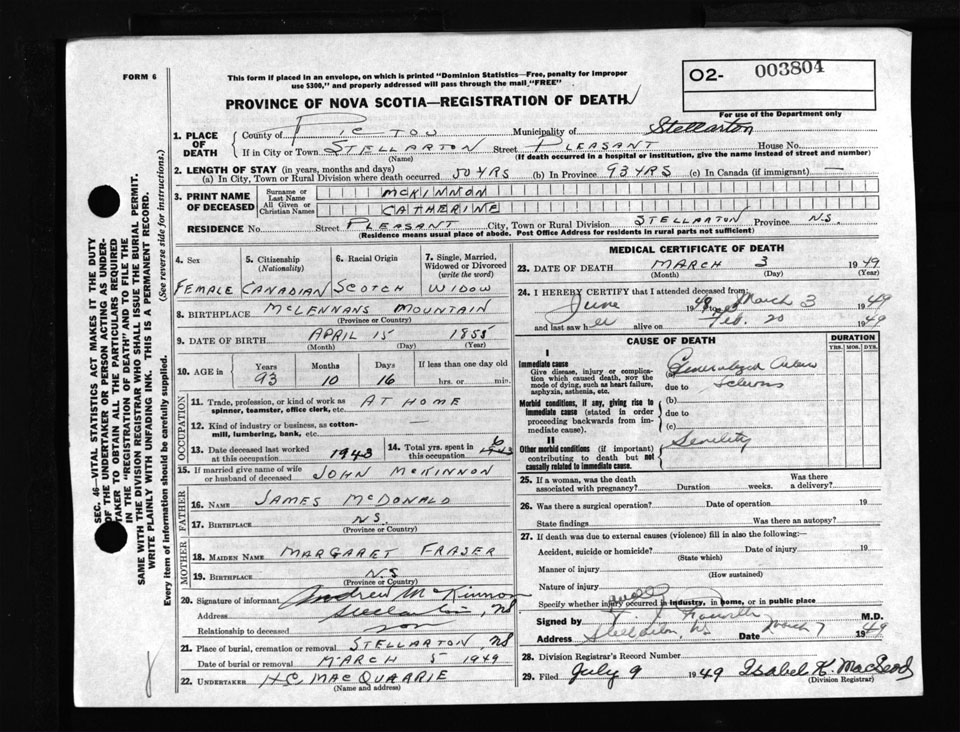 FORM 6
This form if placed in an envelope, on which is printed "Dominion Statistics—Free, penalty for improper
use $300," and properly addressed will pass through the mail "FREE"
O2- 003804
PROVINCE OF NOVA SCOTIA—REGISTRATION OF DEATH
For use of the Department only
1. PLACE OF DEATH
County of PICTOU Municipality of Stellarton
If in City or Town STELLARTON Street PLEASANT House No.
(Name) (If death occurred in a hospital or institution, give the name instead of street and number)
2. LENGTH OF STAY (in years, months and days)
(a) In City, Town or Rural Division where death occurred 50 YRS (b) In Province 93 YRS (c) In Canada (if immigrant) —
3. PRINT NAME OF DECEASED
Surname or Last Name MCKINNON
All Given or Christian Names CATHERINE
RESIDENCE No. Street PLEASANT City, Town or Rural Division STELLARTON Province N.S.
(Residence means usual place of abode. Post Office Address for residents in rural parts not sufficient)
4. Sex
FEMALE
5. Citizenship (Nationality)
CANADIAN
6. Racial Origin
SCOTCH
7. Single, Married, Widowed or Divorced (write the word)
WIDOW
8. BIRTHPLACE MCLENNANS MOUNTAIN
(Province or Country)
9. DATE OF BIRTH APRIL 15 1855
(Month) (Day) (Year)
10. AGE in Years 93 Months 10 Days 16 If less than one day old hrs. or min.
OCCUPATION
11. Trade, profession, or kind of work as spinner, teamster, office clerk, etc. AT HOME
12. Kind of industry or business, as cotton-mill, lumbering, bank, etc. —
13. Date deceased last worked at this occupation 1943
14. Total yrs. spent in this occupation 6 1943
15. If married give name of wife or husband of deceased JOHN MCKINNON
FATHER
16. NAME JAMES MCDONALD
17. BIRTHPLACE N.S.
(Province or Country)
MOTHER
18. MAIDEN NAME MARGARET FRASER
19. BIRTHPLACE N.S
(Province or Country)
20. Signature of informant Andrew McKinnon
Address Stellarton, NS
Relationship to deceased son
21. Place of burial, cremation or removal STELLARTON NS
Date of burial or removal MARCH 5 1949
22. UNDERTAKER H.C. MACQUARRIE
(Name and address)
MEDICAL CERTIFICATE OF DEATH
23. DATE OF DEATH MARCH 3 1949
(Month) (Day) (Year)
24. I HEREBY CERTIFY that I attended deceased from:
June 1948 to March 3 1949
and last saw her alive on Feb. 20 1949
CAUSE OF DEATH
DURATION
YRS. MOS. DYS.
I
Immediate cause
Give disease, injury or complication which caused death, NOT the mode of dying, such as heart failure, asphyxia, asthenia, etc.
(a) Generalized Arterio
due to Sclerosis
Morbid conditions, if any, giving rise to immediate cause (stated in order proceeding backwards from immediate cause).
(b)
due to
(c)
II
Other morbid conditions (if important) contributing to death but not causally related to immediate cause.
Senility
25. If a woman, was the death associated with pregnancy? Duration weeks. Was there a delivery?
26. Was there a surgical operation? Date of operation 19
State findings Was there an autopsy?
27. If death was due to external causes (violence) fill in also the following:—
Accident, suicide or homicide? Date of injury 19
(State which)
Manner of injury
(How sustained)
Nature of injury
Specify whether injury occurred in industry, in home, or in public place
Signed by M.D.
Address Stellarton, NS Date March 7 1949
28. Division Registrar's Record Number
29. Filed July 9 1949 Isabel K. MacLeod
(Division Registrar)
SEC. 46—VITAL STATISTICS ACT MAKES IT THE DUTY
OF THE UNDERTAKER OR PERSON ACTING AS UNDER-
TAKER TO OBTAIN ALL THE PARTICULARS REQUIRED
IN THE "REGISTRATION OF DEATH" AND TO FILE THE
SAME WITH THE DIVISION REGISTRAR WHO SHALL ISSUE THE BURIAL PERMIT.
WRITE PLAINLY WITH UNFADING INK. THIS IS A PERMANENT RECORD.
Every item of information should be carefully supplied. (See reverse side for instructions.)